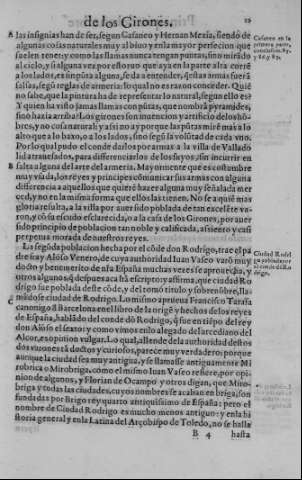 de los Girones. 12
A las insignias han de ser, segun Casaneo y Hernan Mexia, siendo de
algunas cosas naturales muy al biuo y en la mayor perfecion que
suelen tener: y como las llamas nunca tengan puntas, sino mirãdo
al cielo, y si alguna vez por estoruo que aya en la parte alta corrẽ
a los lados, es sin pũta alguna, se da a entender, q̃
falsas, segũ reglas de armeria: lo qual no es razon conceder. Mayor
mente auiendo respuesta llana y muy buena, segun ello es
Y quien ha visto jamas llamas con pũtas, que nombrã pyramides,
sino hazia arriba. Los girones son inuencion y artificio de los hõ-
bres, y no cosa natural: y assi no ay porque las pũtas miré mas a lo
alto que a lo baxo, o a los lados, sino segũ la volũtad de cada vno.
Por lo qual pudo el conde darlos por armas a la villa de Vallado
lid atrauesados, para differenciarlos de los suyos, sin incurrir en
B falta alguna del arte del armeria. Mayormente que es costumbre
muy vsada, los reyes y principes comunicar sus armas con alguna
differencia a aquellos que quierẽ hazer alguna muy señalada mer
ced, y no en la misma forma que ellos las tienen. No se a quiẽ mas
gloria resulta, a la villa por auer sido poblada de tan excelẽte va-
ron, y cõ su escudo esclarecida, o a la casa de los Girones, por auer
sido principio de poblacion tan noble y calificada, assiento y casi
perpetua morada de nuestros reyes.
La segũda poblacion hecha por el cõde don Rodrigo, trae el pa
dre fray Alõso Venero, de cuya authoridad Iuan Vaseo varõ muy
docto y benemerito de nr̃a España muchas vezes se aprouecha, y
otros algunos q̃ despues aca hã escripto: y affirma, que ciudad Ro
drigo fue poblada deste cõde, y del tomò titulo y sobrenõbre, lla-
C mãdose ciudad de Rodrigo. Lo mismo aprueua Francisco Tarafa
canonigo d̃ Barcelona en el libro de la origẽ y hechos de los reyes
de España, hablãdo del conde dõ Rodrigo, q̃ fue en tiẽpo del rey
don Alõso el sexto: y como vimos enlo alegado del arcediano del
Alcor, es opinion vulgar. Lo qual, allende de la authoridad destos
dos varones tã doctos y curiosos, parece muy verdadero; porque
aunque la ciudad sea muy antigua, y se llamasse antiguamente Mi
robrica o Mirobriga, como el mismo Iuan Vaseo refiere, por opi-
nion de algunos, y Florian de Ocampo y otros digan, que Miro-
briga y todas las ciudades, cuyos nombres se acaban en briga, son
fundadas por Brigo rey quarto antiquissimo de España: pero el
nombre de Ciudad Rodrigo es mucho menos antiguo: y en la hi
storia general y en la Latina del Arçobispo de Toledo, no se halla
B 4 hasta
Casaneo en la
primera parte,
Ciudad Rodri
go poblada por
el conde dõ Ro
drigo.